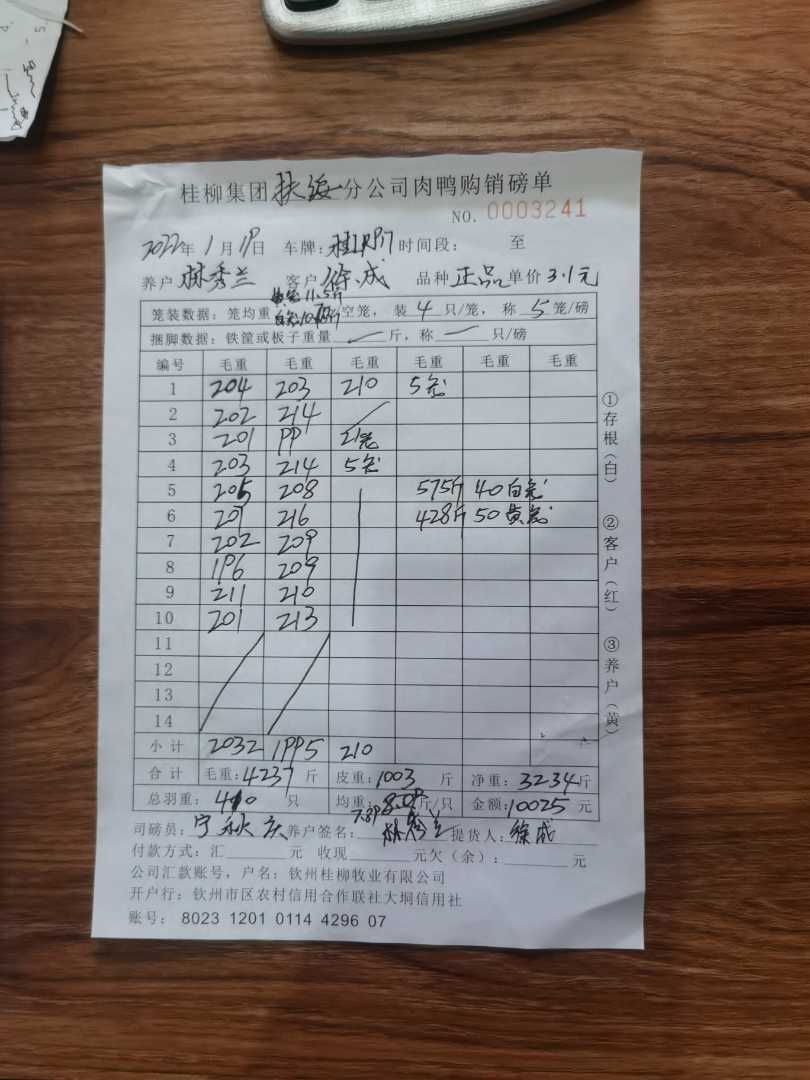 桂柳集团扶绥分公司肉鸭购销磅单
NO. 0003241
2022年1月19日 车牌: 时间段: 至
养户 林秀兰 客户 徐成 品种 正品 单价 3.1元
黄笼11.5斤
笼装数据: 笼均重 /空笼, 装 4 只/笼, 称 5 笼/磅
捆脚数据: 铁筐或板子重量 — 斤, 称 — 只/磅
编号 毛重 毛重 毛重 毛重 毛重 毛重
1 204 203 210 5笼
2 202 214
3 201 PP 21笼
4 203 214 5笼
5 205 208 575斤 40白笼
6 207 216 428斤 50黄笼
7 202 209
8 1P6 209
9 211 210
10 201 213
11
12
13
14
小计 2032 1PP5 210
合计 毛重: 4237 斤 皮重: 1003 斤 净重: 3234斤
总羽重: 410 只 均重: 斤/只 金额: 10025 元
7.89
司磅员: 宁秋庆 养户签名: 林秀兰 提货人: 徐成
付款方式: 汇 元 收现 元欠(余): 元
公司汇款账号, 户名: 钦州桂柳牧业有限公司
开户行: 钦州市区农村信用合作联社大垌信用社
账号: 8023 1201 0114 4296 07
①存根(白)
②客户(红)
③养户(黄)